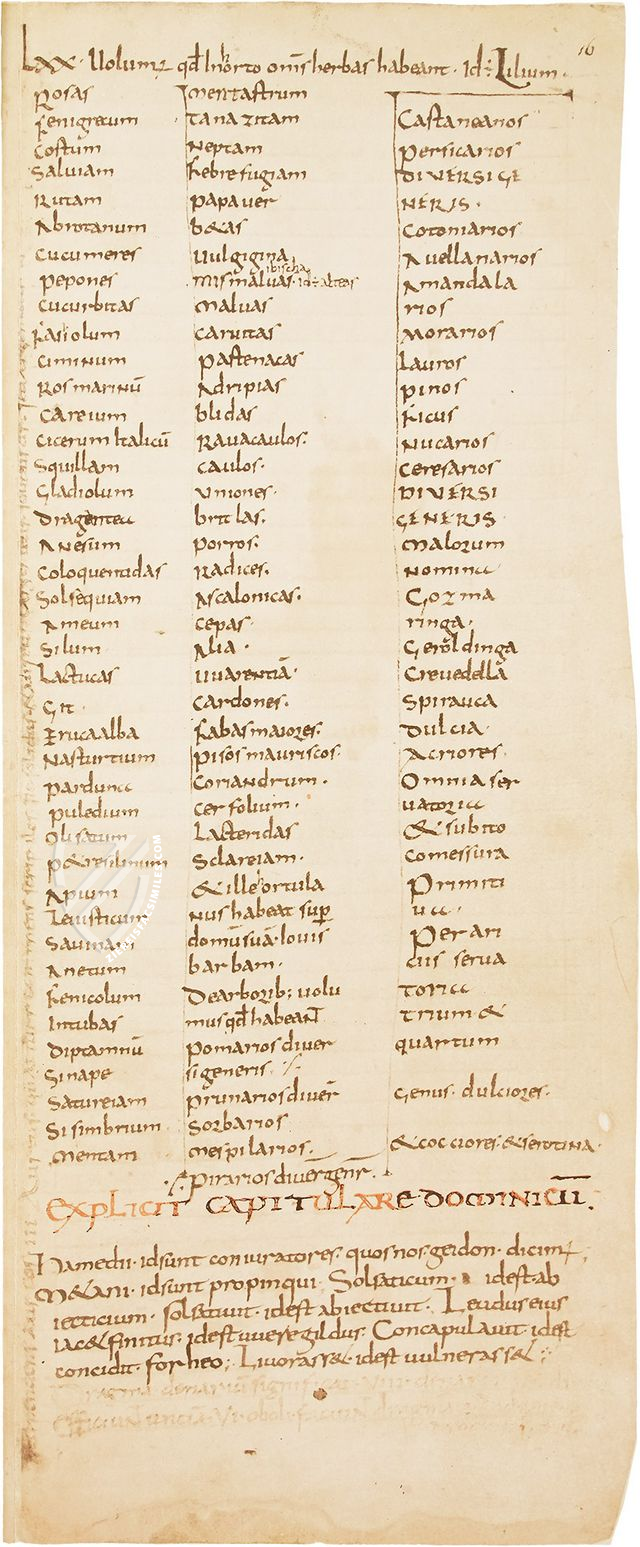 16
Lxx. Uolumꝰ qđ In orto omīs herbas habeant. Id ē Lilium.
Rosas
fenigrecum
Costum
Salviam
Rutam
Abrotanum
Cucumeres
pepones
Cucurbitas
fasiolum
Ciminum
Rosmarinū
Careium
Cicerum Italicū
Squillam
Gladiolum
Dragantea
Anesum
Coloquentidas
Solsequiam
Ameum
Silum
Lactucas
Git
Eruca alba
Nasturtium
parduna
puledium
Olisatum
p&resilinum
Apium
Leuisticum
Sauinam
Anetum
fenicolum
Intubas
Diptamnū
Sinape
Satureiam
Sisimbrium
Mentam
Mentastrum
tanazitam
Neptam
febrefugiam
papauer
b&as
Uulgigina
ibischa
mismaluas. id ē alteas
Maluas
Caruitas
pastenacas
Adripias
blidas
Rauacaulos.
Caulos.
Uniones.
britlas.
porros.
Radices.
Ascalonicas.
Cepas.
Alia.
Uuarentiā.
Cardones.
fabas maiores.
pisos mauriscos.
Coriandrum.
Cerfolium.
Lacteridas
Sclareiam.
& ille ortula
nus habeat sup
domū suā. Iouis
barbam.
De arborib; uolu
mus qđ habeant
pomarios diuer
si generis
prunarios diuer
Sorbarios
Mespilarios.
pirarios diuer gener.
Castaneanos
Persicarios
DIVERSI GE
NERIS.
Cotoniarios
Auellanarios
Amandala
rios
Morarios
Lauros
pinos
ficus
Nucarios
Ceresarios
DIVERSI
GENERIS
Malorum
Nomina
Gozma
ringa.
Geroldinga
Creuedella
Spirauca
Dulcia
Acriores
Omnia ser
uatoria
& subito
comessura
Primiti
ua.
Perari
ciis serua
toria
trium &
quartum
genus. dulciores.
& cocciores. & serotina.
EXPLICIT CAPITULARE DOMINICŪ.
Hamedii. id sunt coniuratores. quos nos geidon. dicimꝰ;
M&ani. id sunt propinqui. Solsaticum. id est ab
iecticium. solsatiuit. id est abiectiuit. Leudus eius
iac& finitus. id est uueregildus. Concapulauit. id est
concidit. forheo; Liuorass&. id est uulnerass&;